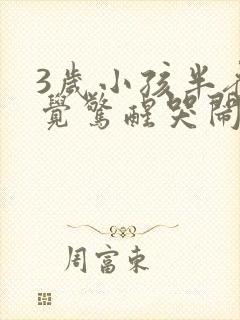 3歲小孩半夜
覺驚醒哭鬧
周富東